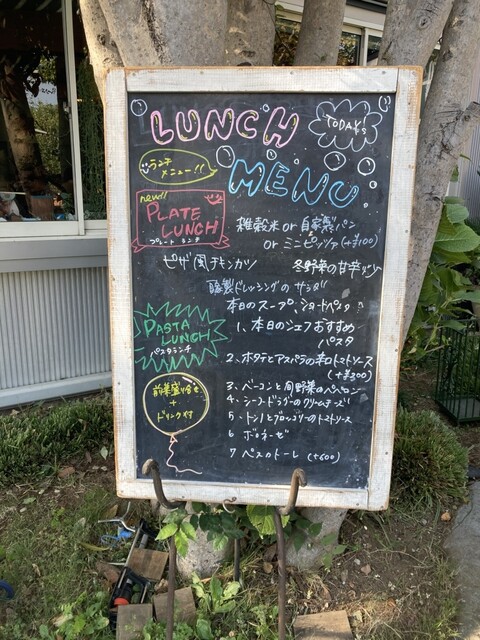 LUNCH
TODAY'S
ランチ
メニュー!!
MENU
new!!
PLATE
LUNCH
プレートランチ
雑穀米 or 自家製パン
or ミニピッツァ(+¥100)
ピザ風チキンカツ
冬野菜の甘辛炒め
燻製ドレッシングのサラダ
本日のスープ、ショートパスタ
PASTA
LUNCH
パスタランチ
1、本日のシェフおすすめ
パスタ
2、ホタテとアスパラの辛口トマトソース
(+¥300)
前菜盛り合せ
+
ドリンク付
3、ベーコンと旬野菜のペペロン
4、シーフードドリアのクリームチーズ
5、とブロッコリーのトマトソース
6 ボロネーゼ
7 ペスカトーレ (+600)